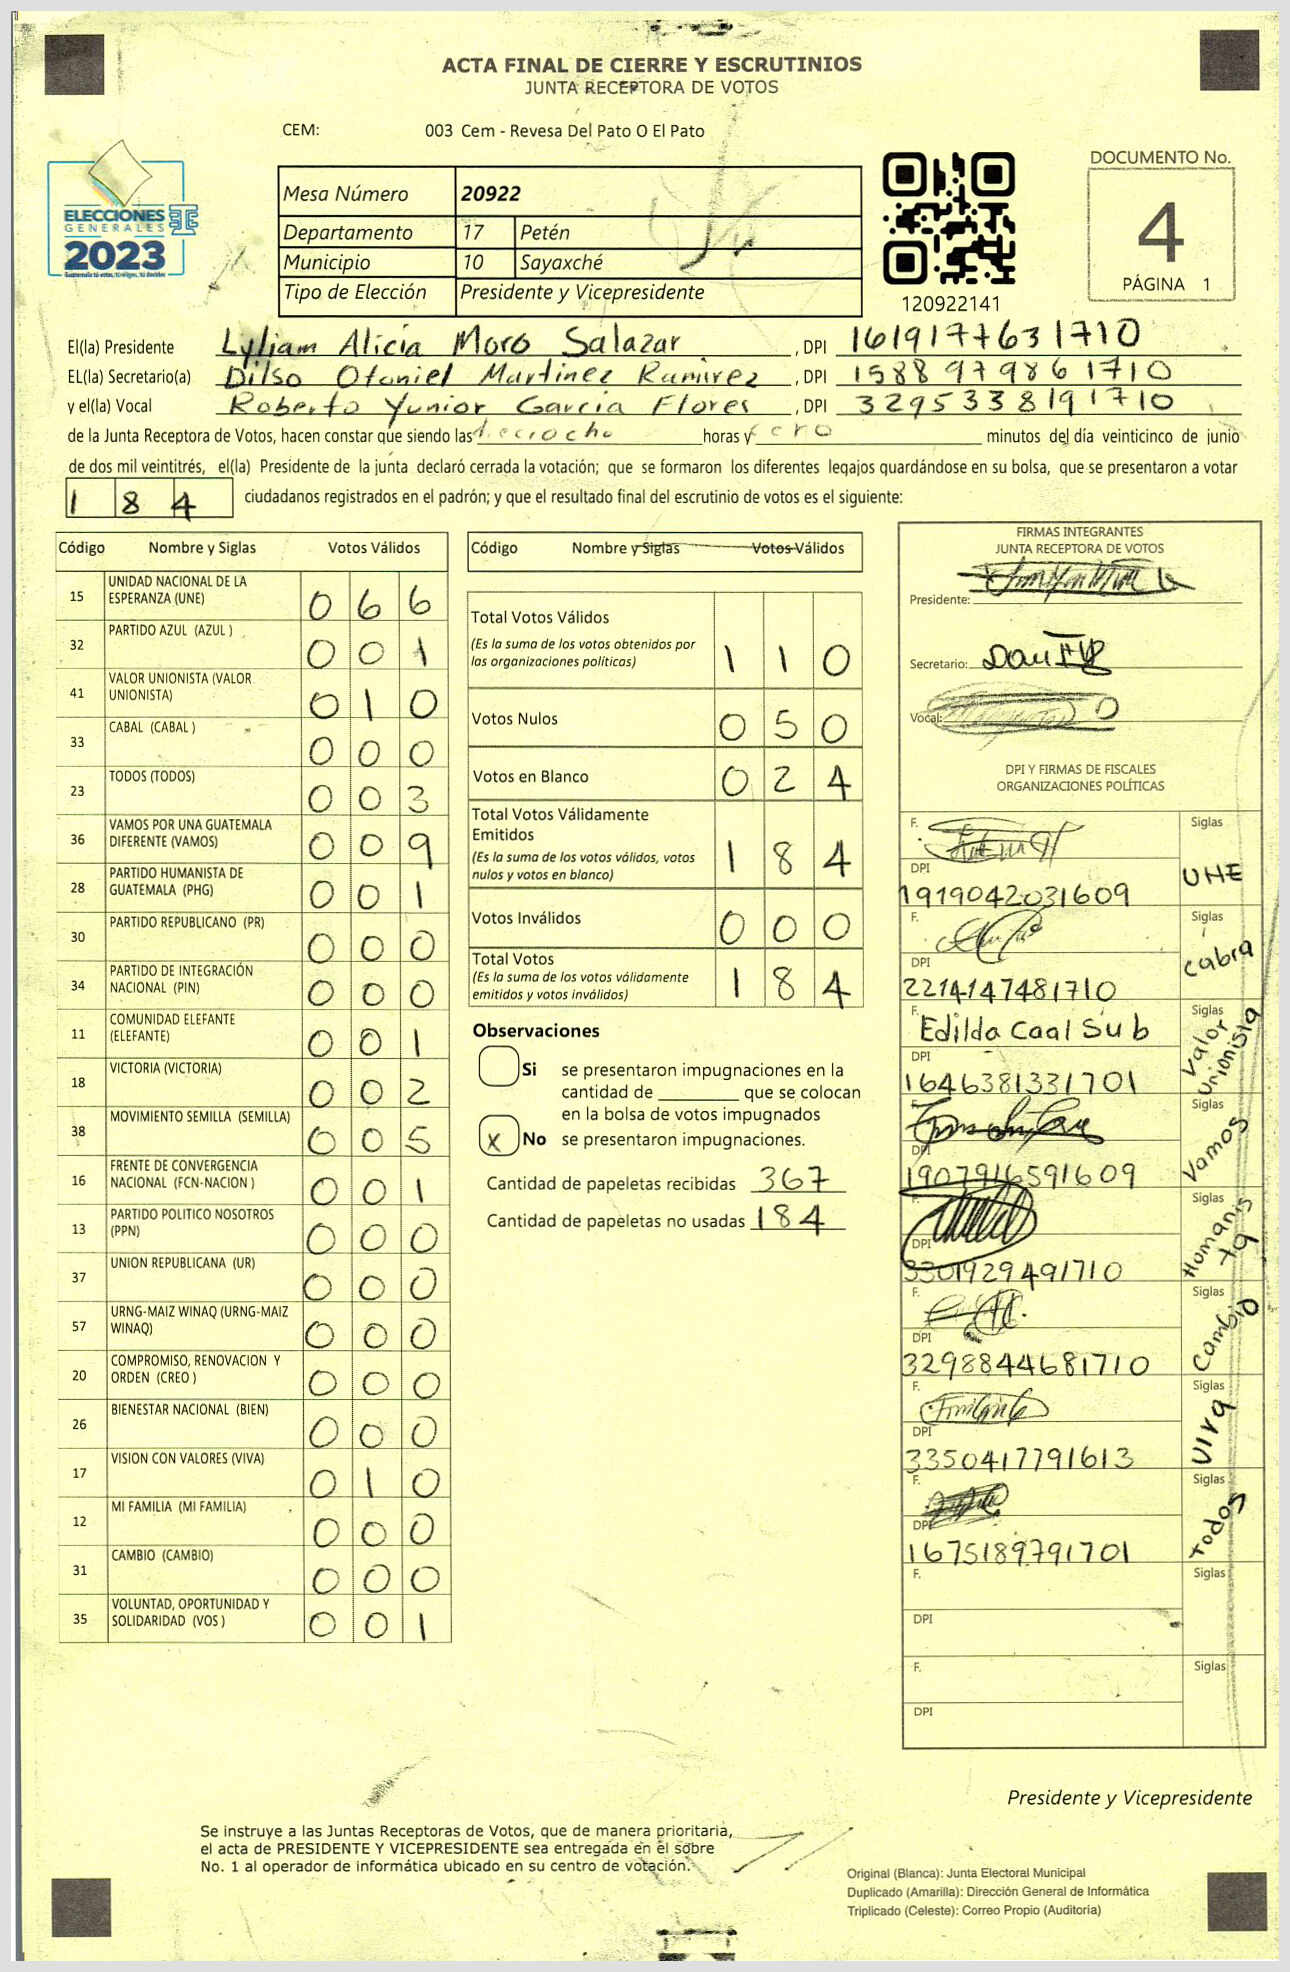 ACTA FINAL DE CIERRE Y ESCRUTINIOS
JUNTA RECEPTORA DE VOTOS
CEM: 003 Cem - Revesa Del Pato O El Pato
ELECCIONES
GENERALES
2023
Mesa Número 20922
Departamento 17 Petén
Municipio 10 Sayaxché
Tipo de Elección Presidente y Vicepresidente
120922141
DOCUMENTO No.
4
PÁGINA 1
El(la) Presidente Lyliam Alicia Moro Salazar, DPI 1619177631710
EL(la) Secretario(a) Dilso Otoniel Martinez Ramirez, DPI 1588979861710
y el(la) Vocal Roberto Yunior Garcia Flores, DPI 3295338191710
de la Junta Receptora de Votos, hacen constar que siendo las dieciocho horas y cero minutos del día veinticinco de junio
de dos mil veintitrés, el(la) Presidente de la junta declaró cerrada la votación; que se formaron los diferentes legajos guardándose en su bolsa, que se presentaron a votar
184 ciudadanos registrados en el padrón; y que el resultado final del escrutinio de votos es el siguiente:
Código Nombre y Siglas Votos Válidos
15 UNIDAD NACIONAL DE LA ESPERANZA (UNE) 066
32 PARTIDO AZUL (AZUL ) 001
41 VALOR UNIONISTA (VALOR UNIONISTA) 010
33 CABAL (CABAL ) 000
23 TODOS (TODOS) 003
36 VAMOS POR UNA GUATEMALA DIFERENTE (VAMOS) 009
28 PARTIDO HUMANISTA DE GUATEMALA (PHG) 001
30 PARTIDO REPUBLICANO (PR) 000
34 PARTIDO DE INTEGRACIÓN NACIONAL (PIN) 000
11 COMUNIDAD ELEFANTE (ELEFANTE) 001
18 VICTORIA (VICTORIA) 002
38 MOVIMIENTO SEMILLA (SEMILLA) 005
16 FRENTE DE CONVERGENCIA NACIONAL (FCN-NACION ) 001
13 PARTIDO POLITICO NOSOTROS (PPN) 000
37 UNION REPUBLICANA (UR) 000
57 URNG-MAIZ WINAQ (URNG-MAIZ WINAQ) 000
20 COMPROMISO, RENOVACION Y ORDEN (CREO ) 000
26 BIENESTAR NACIONAL (BIEN) 000
17 VISION CON VALORES (VIVA) 010
12 MI FAMILIA (MI FAMILIA) 000
31 CAMBIO (CAMBIO) 000
35 VOLUNTAD, OPORTUNIDAD Y SOLIDARIDAD (VOS ) 001
Código Nombre y Siglas Votos Válidos
Total Votos Válidos
(Es la suma de los votos obtenidos por las organizaciones políticas) 110
Votos Nulos 050
Votos en Blanco 024
Total Votos Válidamente Emitidos
(Es la suma de los votos válidos, votos nulos y votos en blanco) 184
Votos Inválidos 000
Total Votos
(Es la suma de los votos válidamente emitidos y votos inválidos) 184
Observaciones
Si se presentaron impugnaciones en la
cantidad de ________ que se colocan
en la bolsa de votos impugnados
x No se presentaron impugnaciones.
Cantidad de papeletas recibidas 367
Cantidad de papeletas no usadas 184
FIRMAS INTEGRANTES
JUNTA RECEPTORA DE VOTOS
Presidente:
Secretario:
Vocal:
DPI Y FIRMAS DE FISCALES
ORGANIZACIONES POLÍTICAS
F. Siglas
DPI UNE
1919042031609
F. Siglas
DPI Cabra
2214147481710
F. Edilda Caal Sub Siglas
DPI Valor Unionista
1646381331701
F. Siglas
DPI Vamos
1907916591609
F. Siglas
DPI Humanista
3301929491710
F. Siglas
DPI Cambio
3298844681710
F. Siglas
DPI Viva
3350417791613
F. Siglas
DPI Todos
1675189791701
F. Siglas
DPI
F. Siglas
DPI
Presidente y Vicepresidente
Se instruye a las Juntas Receptoras de Votos, que de manera prioritaria,
el acta de PRESIDENTE Y VICEPRESIDENTE sea entregada en el sobre
No. 1 al operador de informática ubicado en su centro de votación.
Original (Blanca): Junta Electoral Municipal
Duplicado (Amarilla): Dirección General de Informática
Triplicado (Celeste): Correo Propio (Auditoría)